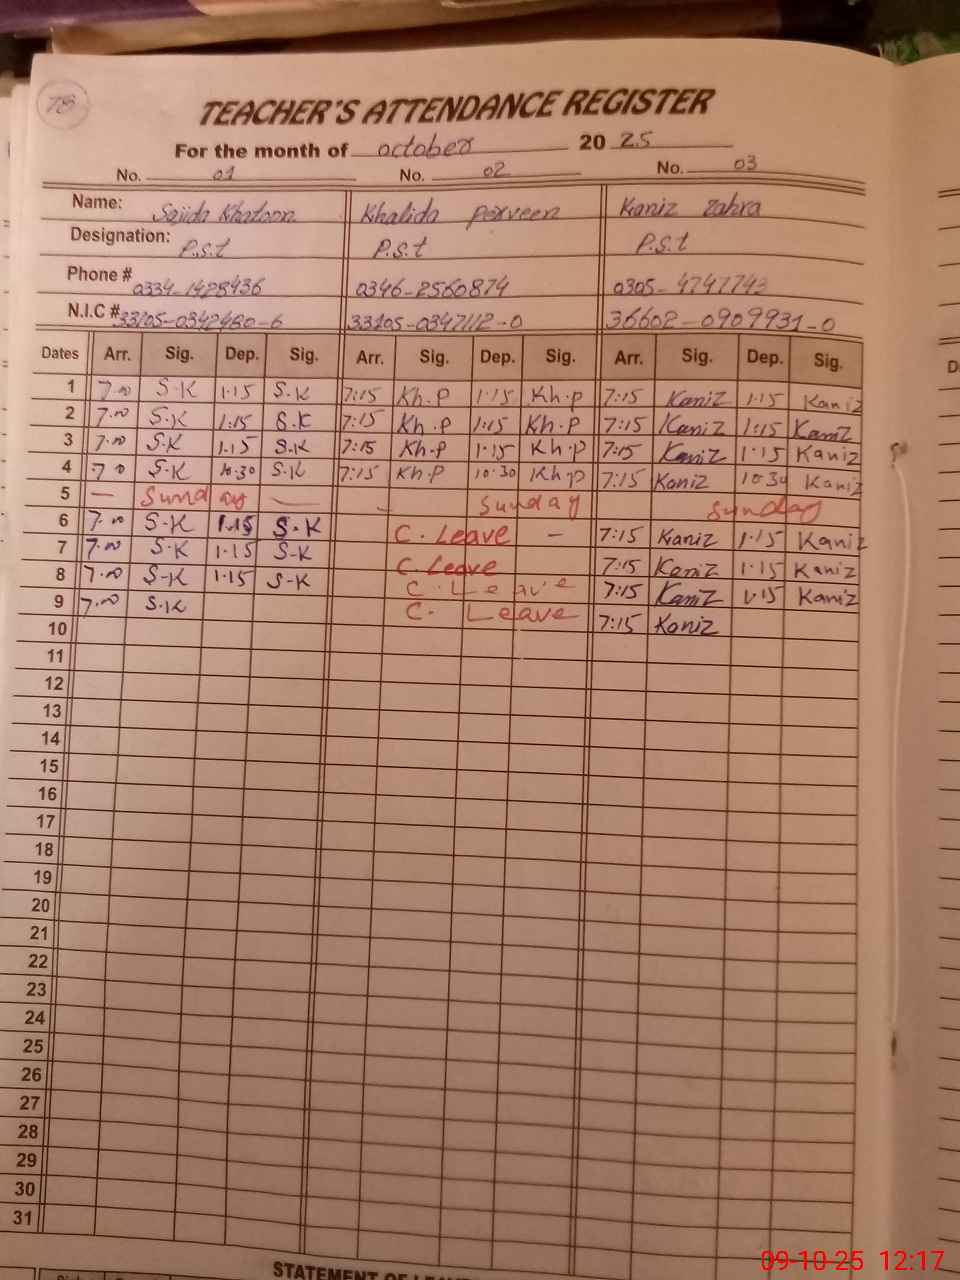 78
TEACHER'S ATTENDANCE REGISTER
For the month of october 20 25
No. 01 No. 02 No. 03
Name: Sajida Khatoon Khalida perveen Kaniz zahra
Designation: P.s.t P.s.t P.s.t
Phone # 0334-1428436 0346-2560874 0305-4747743
N.I.C # 33105-0342480-6 33105-0347112-0 36602-0909931-0
Dates Arr. Sig. Dep. Sig. Arr. Sig. Dep. Sig. Arr. Sig. Dep. Sig.
1 7.00 S.K 1.15 S.K 7:15 Kh.P 1.15 Kh.P 7:15 Kaniz 1.15 Kaniz
2 7.00 S.K 1.15 S.K 7:15 Kh.P 1:15 Kh.P 7:15 Kaniz 1:15 Kaniz
3 7.00 S.K 1.15 S.K 7:15 Kh.P 1.15 Kh.P 7:15 Kaniz 1.15 Kaniz
4 7 0 S.K 10.30 S.K 7:15 Kh.P 10.30 Kh.P 7:15 Kaniz 10.30 Kaniz
5 — Sunday — - Sunday Sunday
6 7.00 S-K 1.15 S-K C. Leave — 7:15 Kaniz 1.15 Kaniz
7 7.00 S-K 1.15 S-K C. Leave 7:15 Kaniz 1.15 Kaniz
8 7.00 S-K 1.15 S-K C. Leave 7:15 Kaniz 1.15 Kaniz
9 7.00 S.K C. Leave 7:15 Kaniz
10
11
12
13
14
15
16
17
18
19
20
21
22
23
24
25
26
27
28
29
30
31
STATEMENT OF
09-10-25 12:17